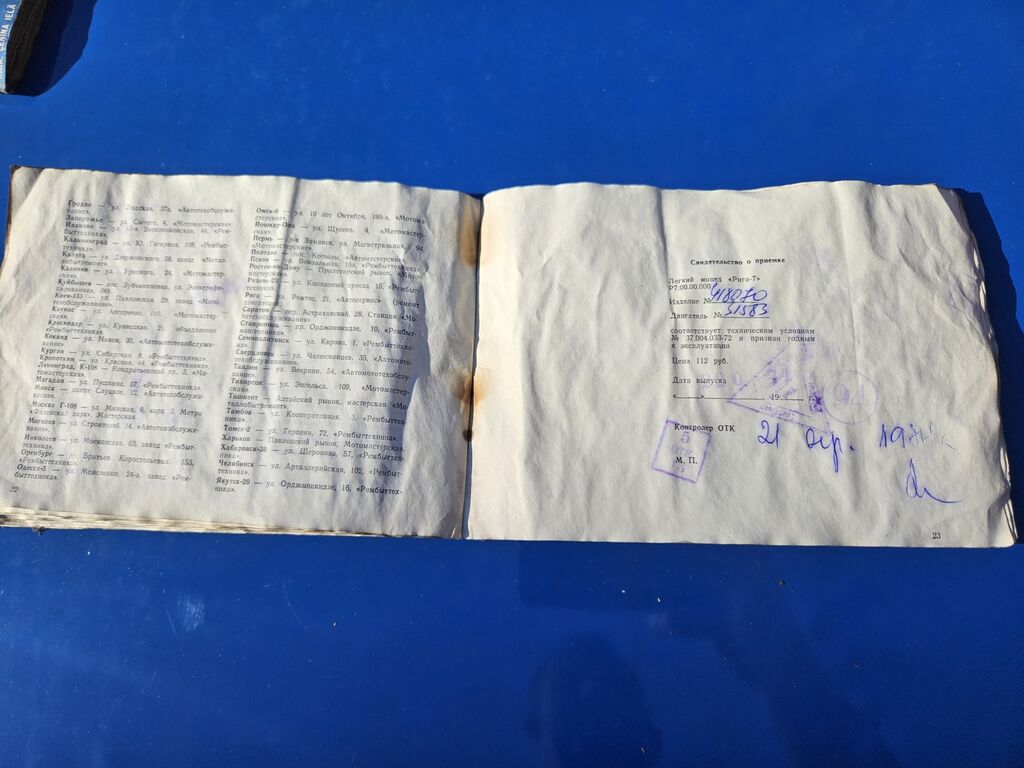 Гродно — ул. Лидская, 37а, «Автотехобслужи-
вание».
Запорожье — ул. Сытова, 4, «Мотомастерская».
Иваново — ул. 44, «Рем-
быттехника».
Калининград — ул. Ю. Гагарина, 108, «Рембыт-
техника».
Калуга — ул. Дзержинского, 58, завод «Метал-
лобытремонт».
Калинин — ул. Урицкого, 24, «Мотомастер-
ская».
Куйбышев — пос. Зубчаниновка, ул. Электрифи-
цированная, 348.
Киев-135 — ул. Павловская, 28, завод «Мото-
техобслуживание».
Каунас — ул. 110, «Мотомастер-
ская».
Краснодар — ул. 21, объединение
«Рембыттехника».
Коканд — ул. Навои, 30, «Автомототехобслужи-
вание».
Курган — ул. Сибирская, 8, «Рембыттехника».
Кропоткин — ул. Красная, 44, «Рембыттехника».
Ленинград, К-108 — Кондратьевский пр. 5, «Мо-
томастерская».
Магадан — ул. Пушкина, 17, «Рембыттехника».
Минск — шоссе Слуцкое, 12, «Автотехобслужи-
вание».
Москва Г-108 — ул. Минская, 9, корп. 3, Метро
«Филевский парк», Мастерская.
Могилев — ул. Строителей, 14, «Автотехобслужи-
вание».
Николаев — ул. Московская, 63, завод «Рембыт-
техника».
Оренбург — пр. Братьев Коростелевых, 153,
«Рембыттехника».
Одесса-5 — ул. Моисеенко, 24-а, завод «Рем-
быттехника».
22
Омск-9 — ул. 10 лет Октября, 195-а, «Мотома-
стерская».
Йошкар-Ола — ул. Щусева, 4, «Мотомастер-
ская».
Пермь — р-н Заманск, ул. Магистральная, 94,
«Мотомастерские».
Полтава — пос. Копылы, «Автомастерские».
Псков — ул. Вокзальная, 16а, «Рембыттехника».
Ростов-на-Дону — Пролетарский рынок, «Мото-
мастерские».
Рязань-23 — ул. Колхозный проезд, 15, «Рембыт-
техника».
Рига — ул. Ремтес, 21, «Автосервис» (ремонт
двигателя).
Саратов — пер. Астраханский, 28, Станция «Мо-
тотехобслуживание».
Ставрополь — пр. Орджоникидзе, 10, «Рембыт-
маштехника».
Семипалатинск — ул. Кирова, 1, «Рембыттех-
ника».
Свердловск — ул. Челюскинцев, 35, «Автомото-
техобслуживание».
Таллин — ул. Веерини, 54, «Автомототехобслу-
живание».
Тихорецк — ул. Энгельса, 109, «Мотомастер-
ская».
Ташкент — Алтайский рынок, мастерская «Ме-
таллобытремонт».
Тамбов — ул. Кооперативная, 3, «Рембыттех-
ника».
Томск-2 — ул. Герцена, 72, «Рембыттехника».
Харьков — Павловский рынок, Мотомастерская.
Хабаровск-30 — ул. Шеронова, 57, «Рембыттех-
ника».
Челябинск — ул. Артиллерийская, 102, «Рембыт-
техника».
Якутск-20 — ул. Орджоникидзе, 16, «Рембыттех-
ника».
Свидетельство о приемке
Легкий мопед «Рига-7»
Р7.00.00.000
Изделие № 418070
Двигатель № 31583
соответствует техническим условиям
№ 37.004.033-72 и признан годным
к эксплуатации
Цена 112 руб.
Дата выпуска
Контролер ОТК
5
М. П.
23